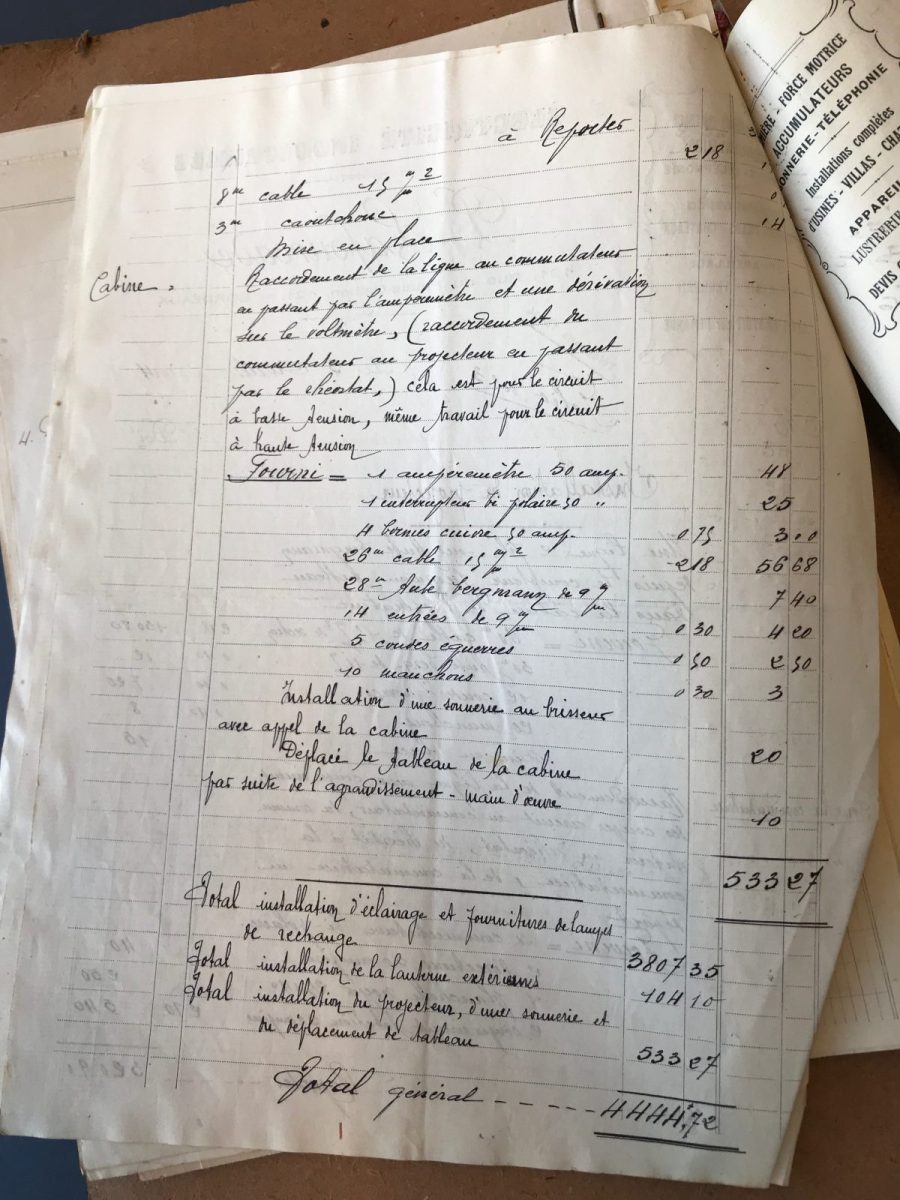 à Reporter
8 m cable 15 m/m 2 218
3 m caoutchouc
Mise en place 14
Cabine. Raccordement de la ligne au commutateur
en passant par l'ampèremètre et une dérivation
sur le voltmètre, (raccordement du
commutateur au projecteur en passant
par le rhéostat,) cela est pour le circuit
à basse tension, même travail pour le circuit
à haute tension
Fourni = 1 ampèremètre 50 amp. 48
1 interrupteur bi polaire 50 " 25
4 bornes cuivre 50 amp. 0 75 3 00
26 m cable 15 m/m 2 218 56 68
28 m tube bergmann de 9 m/m 7 40
14 entrées de 9 m/m 0 30 4 20
5 coudes équerres 0 50 2 50
10 manchons 0 30 3
Installation d'une sonnerie au brisseur
avec appel de la cabine 20
Déplacé le tableau de la cabine
par suite de l'agrandissement - main d'œuvre 10
533 27
Total installation d'éclairage et fournitures de lampes
de rechange 3807 35
Total installation de la lanterne extérieures 104 10
Total installation du projecteur, d'une sonnerie et
du déplacement de tableau 533 27
Total général - - - - - 4444,72
FORCE MOTRICE
ACCUMULATEURS
TÉLÉPHONIE
Installations complètes
D'USINES - VILLAS -
APPAREIL
LUSTRERIE
DEVIS